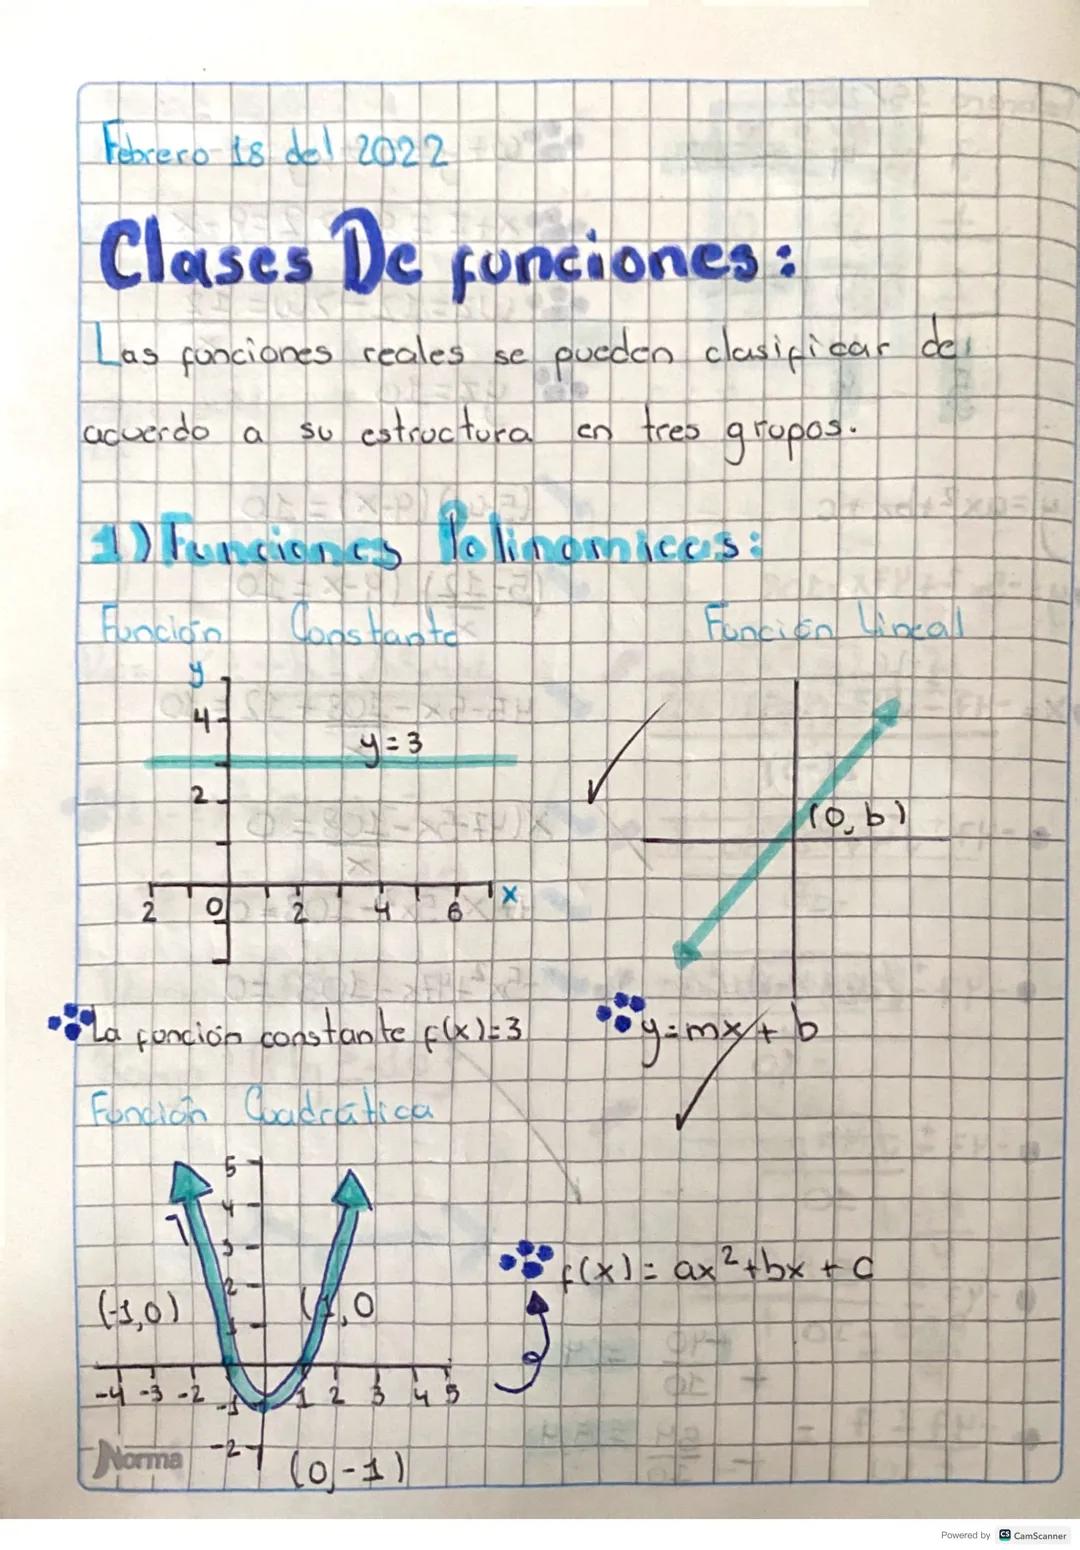 Febrero 18 del 2022
Clases De funciones:
Las funciones reales se pueden clasificar de
acuerdo a su estructura en tres grupos.
1) Funciones Polinomicas:
Función Constante
Función Lineal
y
4
y=3
2
2 0 2 4 6 x
(0,b)
La función constante f(x)=3
y=mx+b
Función Cuadrática
5
4
3
2
1
(-1,0)
(1,0
f(x)= ax²+bx+c
-4 -3 -2 1 2 3 4 5
-1
-2
(0,-1)
Norma
Powered by CS CamScanner